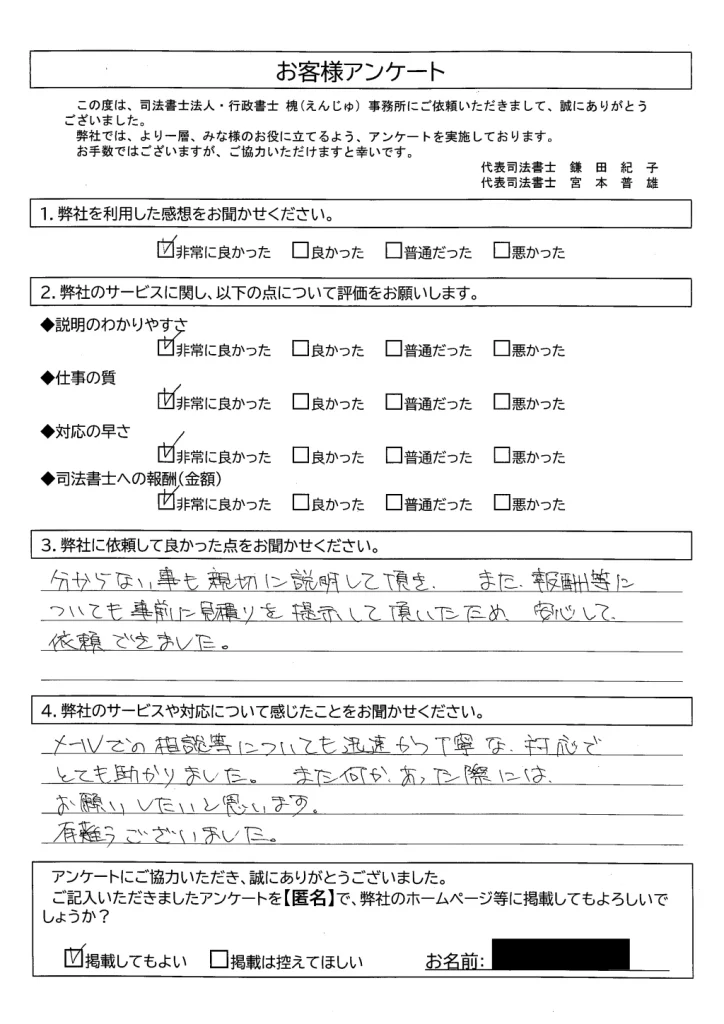 お客様アンケート
この度は、司法書士法人・行政書士 槐(えんじゅ) 事務所にご依頼いただきまして、誠にありがとう
ございました。
弊社では、より一層、みな様のお役に立てるよう、アンケートを実施しております。
お手数ではございますが、ご協力いただけますと幸いです。
代表司法書士 鎌 田 紀 子
代表司法書士 宮 本 普 雄
1. 弊社を利用した感想をお聞かせください。
☑非常に良かった □良かった □普通だった □悪かった
2. 弊社のサービスに関し、以下の点について評価をお願いします。
◆説明のわかりやすさ
☑非常に良かった □良かった □普通だった □悪かった
◆仕事の質
☑非常に良かった □良かった □普通だった □悪かった
◆対応の早さ
☑非常に良かった □良かった □普通だった □悪かった
◆司法書士への報酬(金額)
☑非常に良かった □良かった □普通だった □悪かった
3. 弊社に依頼して良かった点をお聞かせください。
分からない事も親切に説明して頂き、 また、報酬等に
ついても事前に見積りを提示して頂いたため、安心して、
依頼できました。
4. 弊社のサービスや対応について感じたことをお聞かせください。
メールでの相談等についても迅速かつ丁寧な、対応で
とても助かりました。 また何か、あった際には、
お願いしたいと思います。
有難うございました。
アンケートにご協力いただき、誠にありがとうございました。
ご記入いただきましたアンケートを【匿名】で、弊社のホームページ等に掲載してもよろしいで
しょうか？
☑掲載してもよい □掲載は控えてほしい お名前: